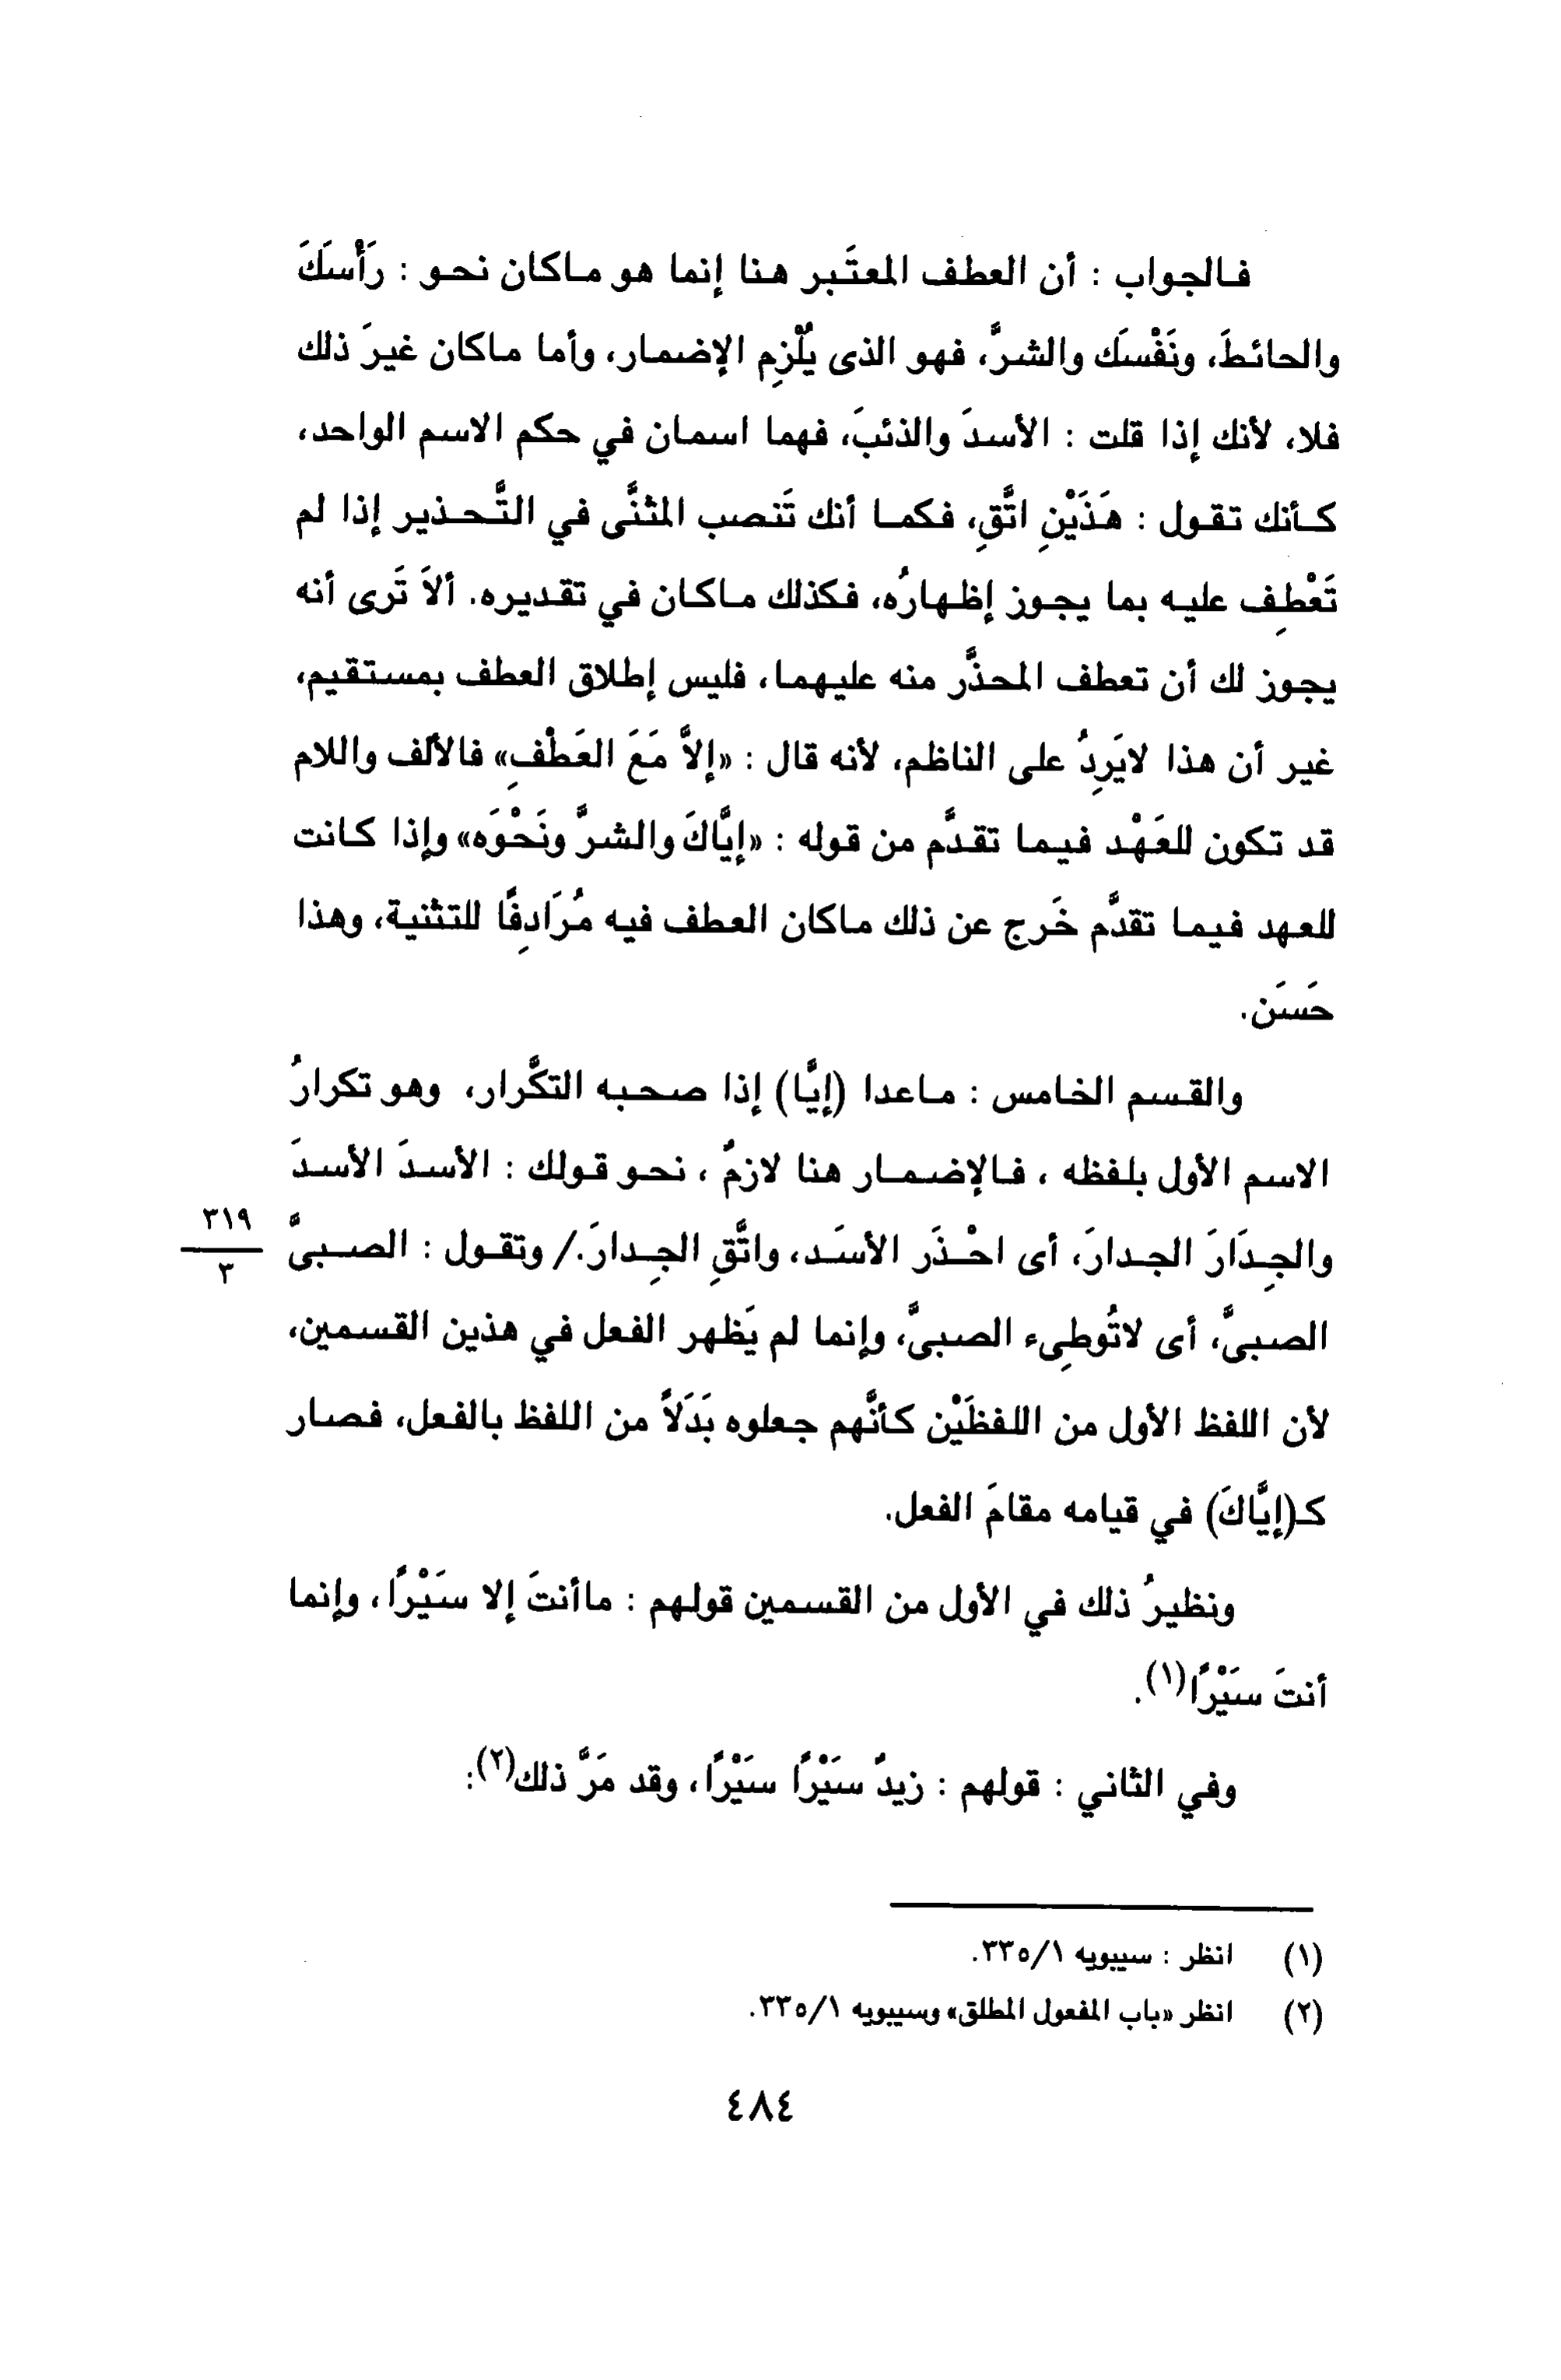 فالجواب : أن العطف المعتَبر هنا إنما هو ماكان نحو : رَأْسَكَ
والحائطَ، ونَفْسَك والشرَّ، فهو الذى يُلْزِم الإضمار، وأما ماكان غيرَ ذلك
فلا، لأنك إذا قلت : الأسدَ والذئبَ، فهما اسمان في حكم الاسم الواحد،
كأنك تقول : هَذَيْنِ اتَّقِ، فكما أنك تَنصب المثنَّى في التَّحذير إذا لم
تَعْطِف عليه بما يجوز إظهارُه، فكذلك ماكان في تقديره. ألاَ تَرى أنه
يجوز لك أن تعطف المحذَّر منه عليهما، فليس إطلاق العطف بمستقيم،
غير أن هذا لايَرِدُ على الناظم، لأنه قال : «إلاَّ مَعَ العَطْفِ» فالألف واللام
قد تكون للعَهْد فيما تقدَّم من قوله : «إيَّاكَ والشرَّ ونَحْوَه» وإذا كانت
للعهد فيما تقدَّم خَرج عن ذلك ماكان العطف فيه مُرَادِفًا للتثنية، وهذا
حَسَن.
والقسم الخامس : ماعدا (إيَّا) إذا صحبه التكَّرار، وهو تكرارُ
الاسم الأول بلفظه ، فالإضمار هنا لازمٌ ، نحو قولك : الأسدَ الأسدَ
والجِدَارَ الجدارَ، أى احْذَر الأسَد، واتَّقِ الجِدارَ./ وتقول : الصبىَّ
٣١٩
٣
الصبىَّ، أى لاتُوطِىء الصبىَّ، وإنما لم يَظهر الفعل في هذين القسمين،
لأن اللفظ الأول من اللفظَيْن كأنَّهم جعلوه بَدَلاً من اللفظ بالفعل، فصار
كـ(إيَّاكَ) في قيامه مقامَ الفعل.
ونظيرُ ذلك في الأول من القسمين قولهم : ماأنتَ إلا سَيْرًا، وإنما
أنتَ سَيْرًا(١).
وفي الثاني : قولهم : زيدٌ سَيْرًا سَيْرًا، وقد مَرَّ ذلك(٢):
(١) انظر : سيبويه ١/٣٣٥.
(٢) انظر «باب المفعول المطلق» وسيبويه ١/٣٣٥.
٤٨٤